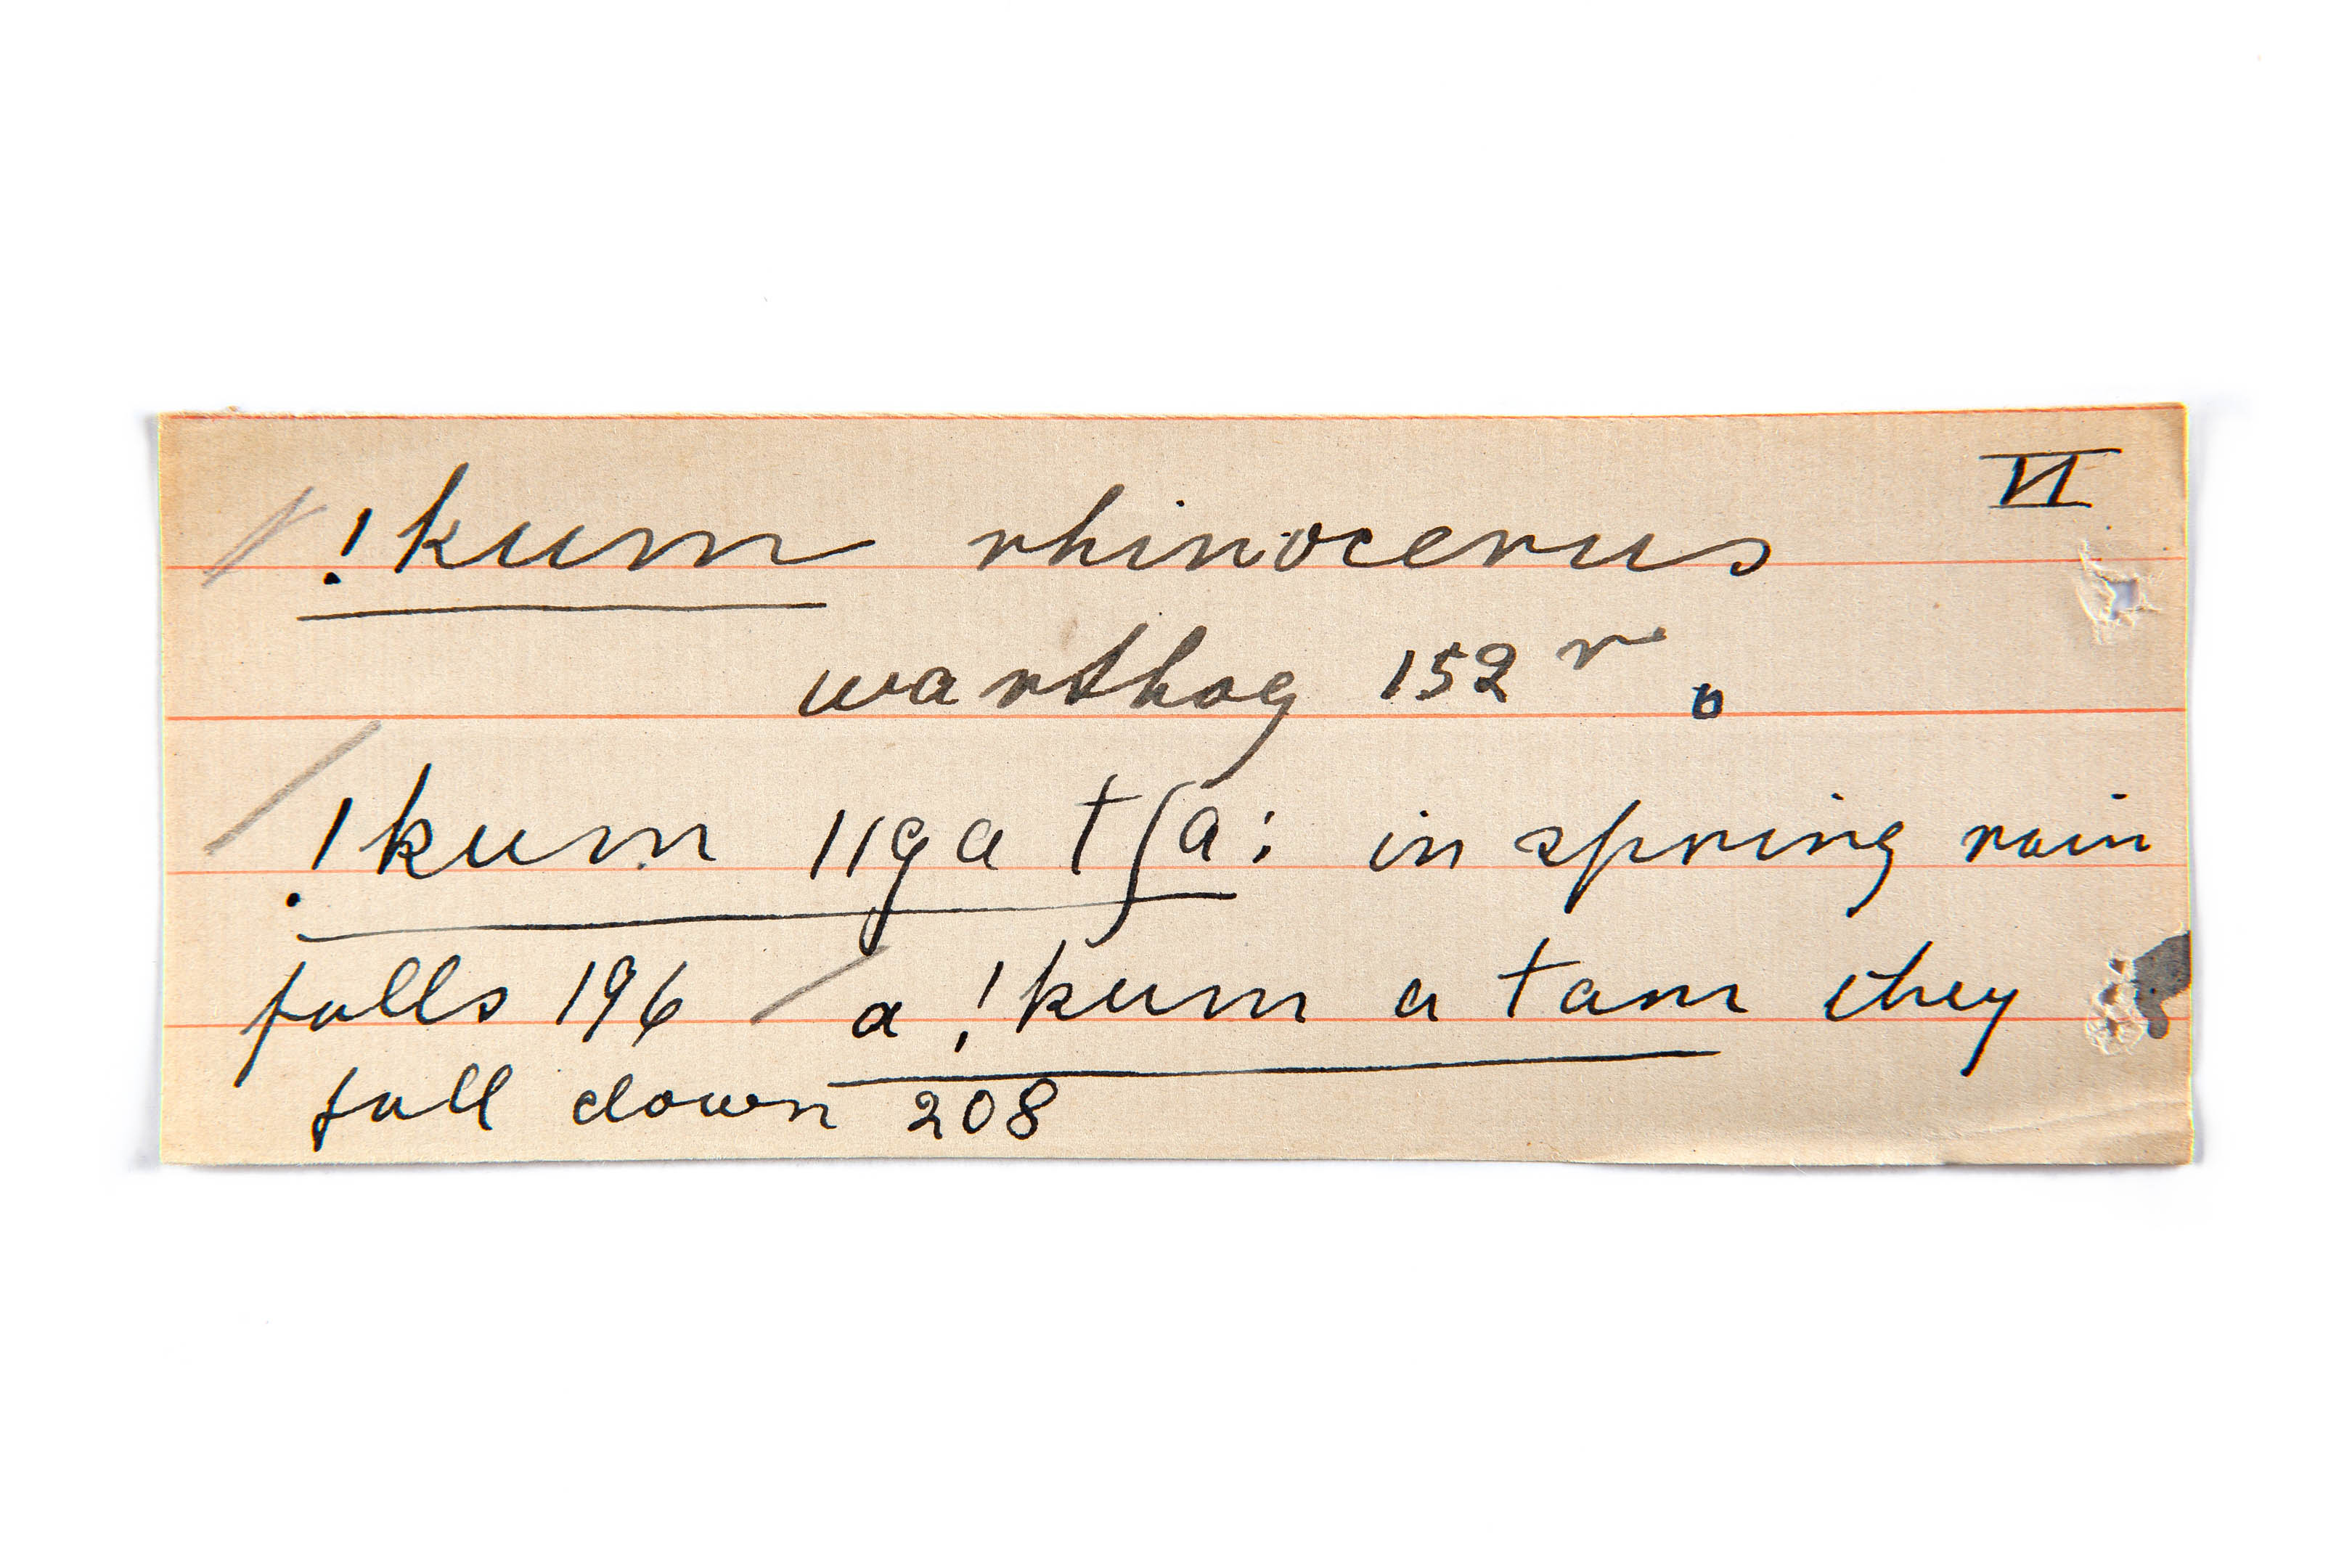 VI
!kum rhinocerus
warthog 152 r
!kum ǁga tʃa: in spring rain
falls 196 a !kum a tam they
fall down 208